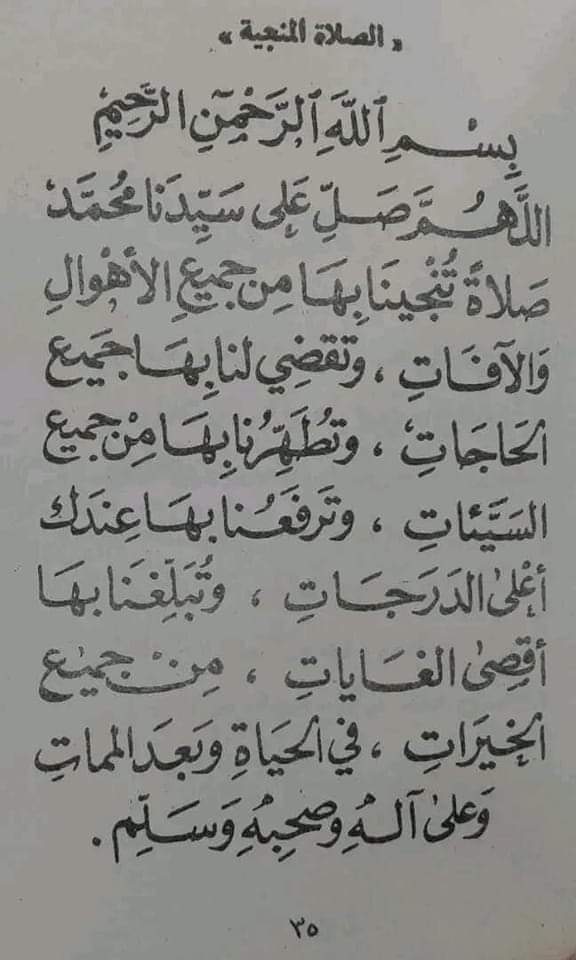 « الصلاة المنجية »
بِسْمِ ٱللَّهِ ٱلرَّحْمٰنِ الرَّحِيْمِ
اللَّهُمَّ صَلِّ عَلى سَيِّدِنَا مُحَمَّدٍ
صَلاةً تُنْجِينَا بِهَا مِن جَمِيعِ الأَهْوَالِ
وَالآفَاتِ ، وَتَقضِي لَنا بِهَا جَمَيع
الحَاجَاتِ ، وَتُطَهِّرُنا بِهَا مِنْ جَمِيع
السَيَّئاتِ ، وَتَرفَعُنا بهَا عِندَك
أعْلىٰ الدَرَجَاتِ ، وَتُبَلِّغنَا بهَا
أقصِىٰ الغَاياتِ ، مِنْ جَميْع
الخيَراتِ ، في الحَيَاةِ وَبَعدَ المماتِ
وَعَلىٰ آلهِ وَصَحبِهِ وَسَلِّم .
٣٥